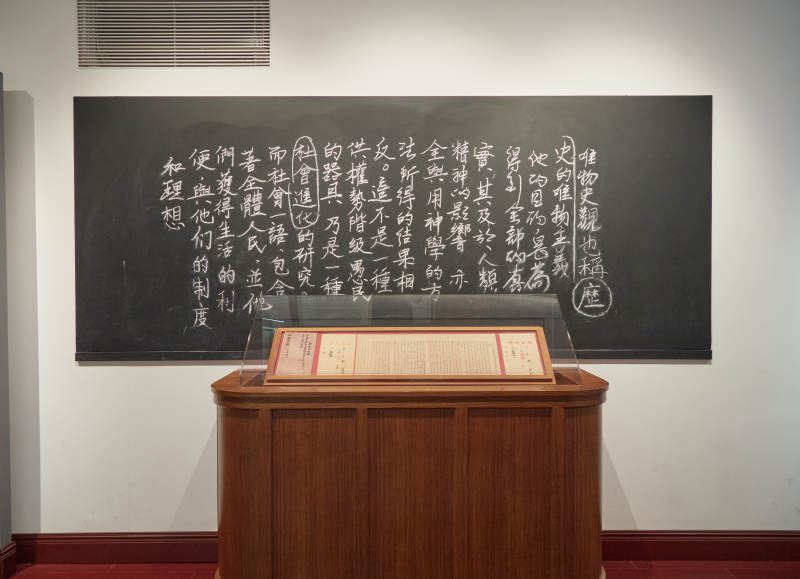 唯物史觀也稱歷
史的唯物主義
他的目的,是爲
得到全部的真
實,其及於人類
精神的影響,亦
全與用神學的方
法所得的結果相
反。這不是一種
供權勢階級愚民
的器具,乃是一種
社會進化的研究。
而社會一語,包含
著全體人民,並他
們獲得生活的利
便,與他们的制度
和理想